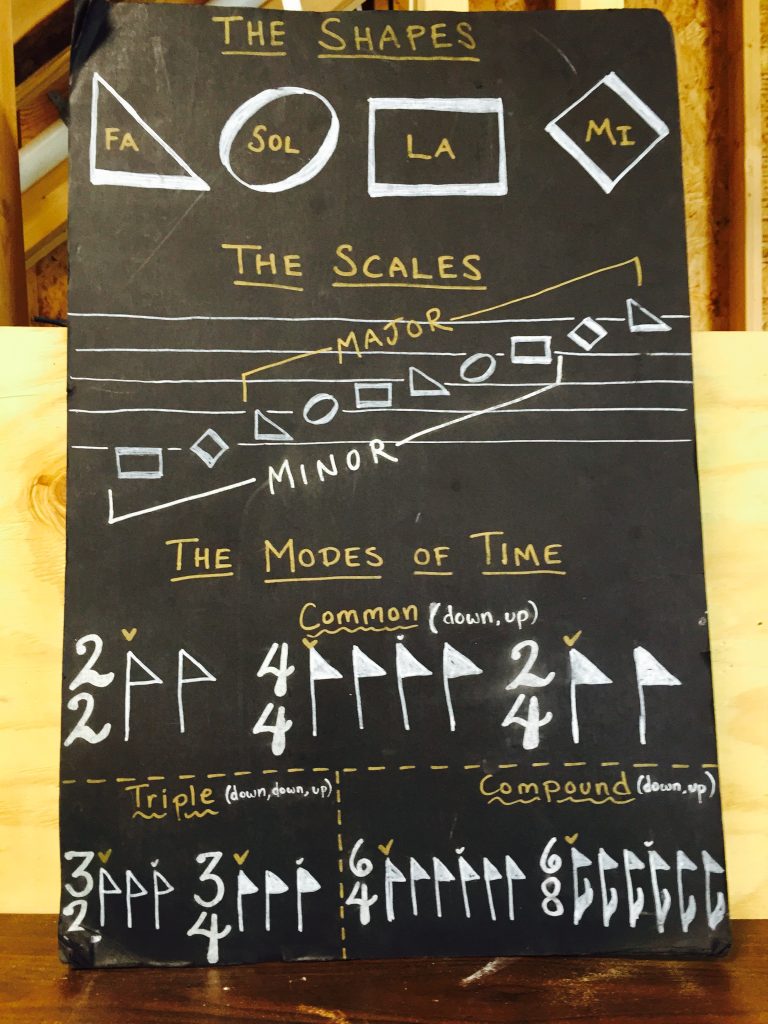 THE SHAPES
FA SOL LA MI
THE SCALES
MAJOR
MINOR
THE MODES OF TIME
Common (down, up)
2 2 4 4 2 4
Triple (down, down, up)
Compound (down, up)
3 2 3 4 6 4 6 8